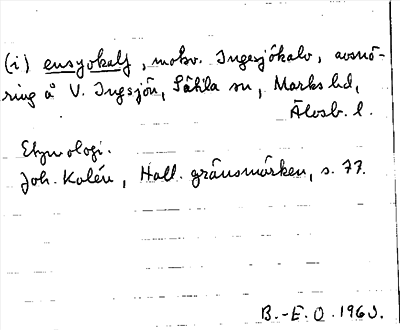 (i) ensyokalf, motsv. Ingesjökalv, avsnö-
ring å V. Ingsjön, Sätila sn, Marks hd,
Älvsb. l.
Etymologi.
Joh. Kalén, Hall. gränsmärken, s. 77.
B.-E. O. 1960.